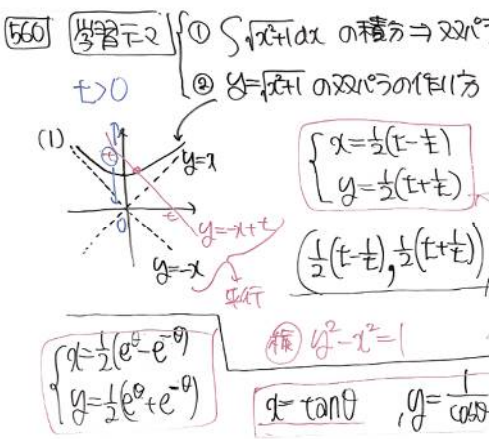 560 学習テーマ ① ∫√x²+1 dx の積分 ⇒ 双パラ
② y=√x²+1 の双パラの作り方
t>0
(1)
y=x
t
t
0
y=-x+t
y=-x
平行
{ x=½(t-1/t)
y=½(t+1/t)
(½(t-1/t), ½(t+1/t))
{ x=½(e^θ-e^-θ)
y=½(e^θ+e^-θ)
y²-x²=1
x=tanθ , y=1/cosθ